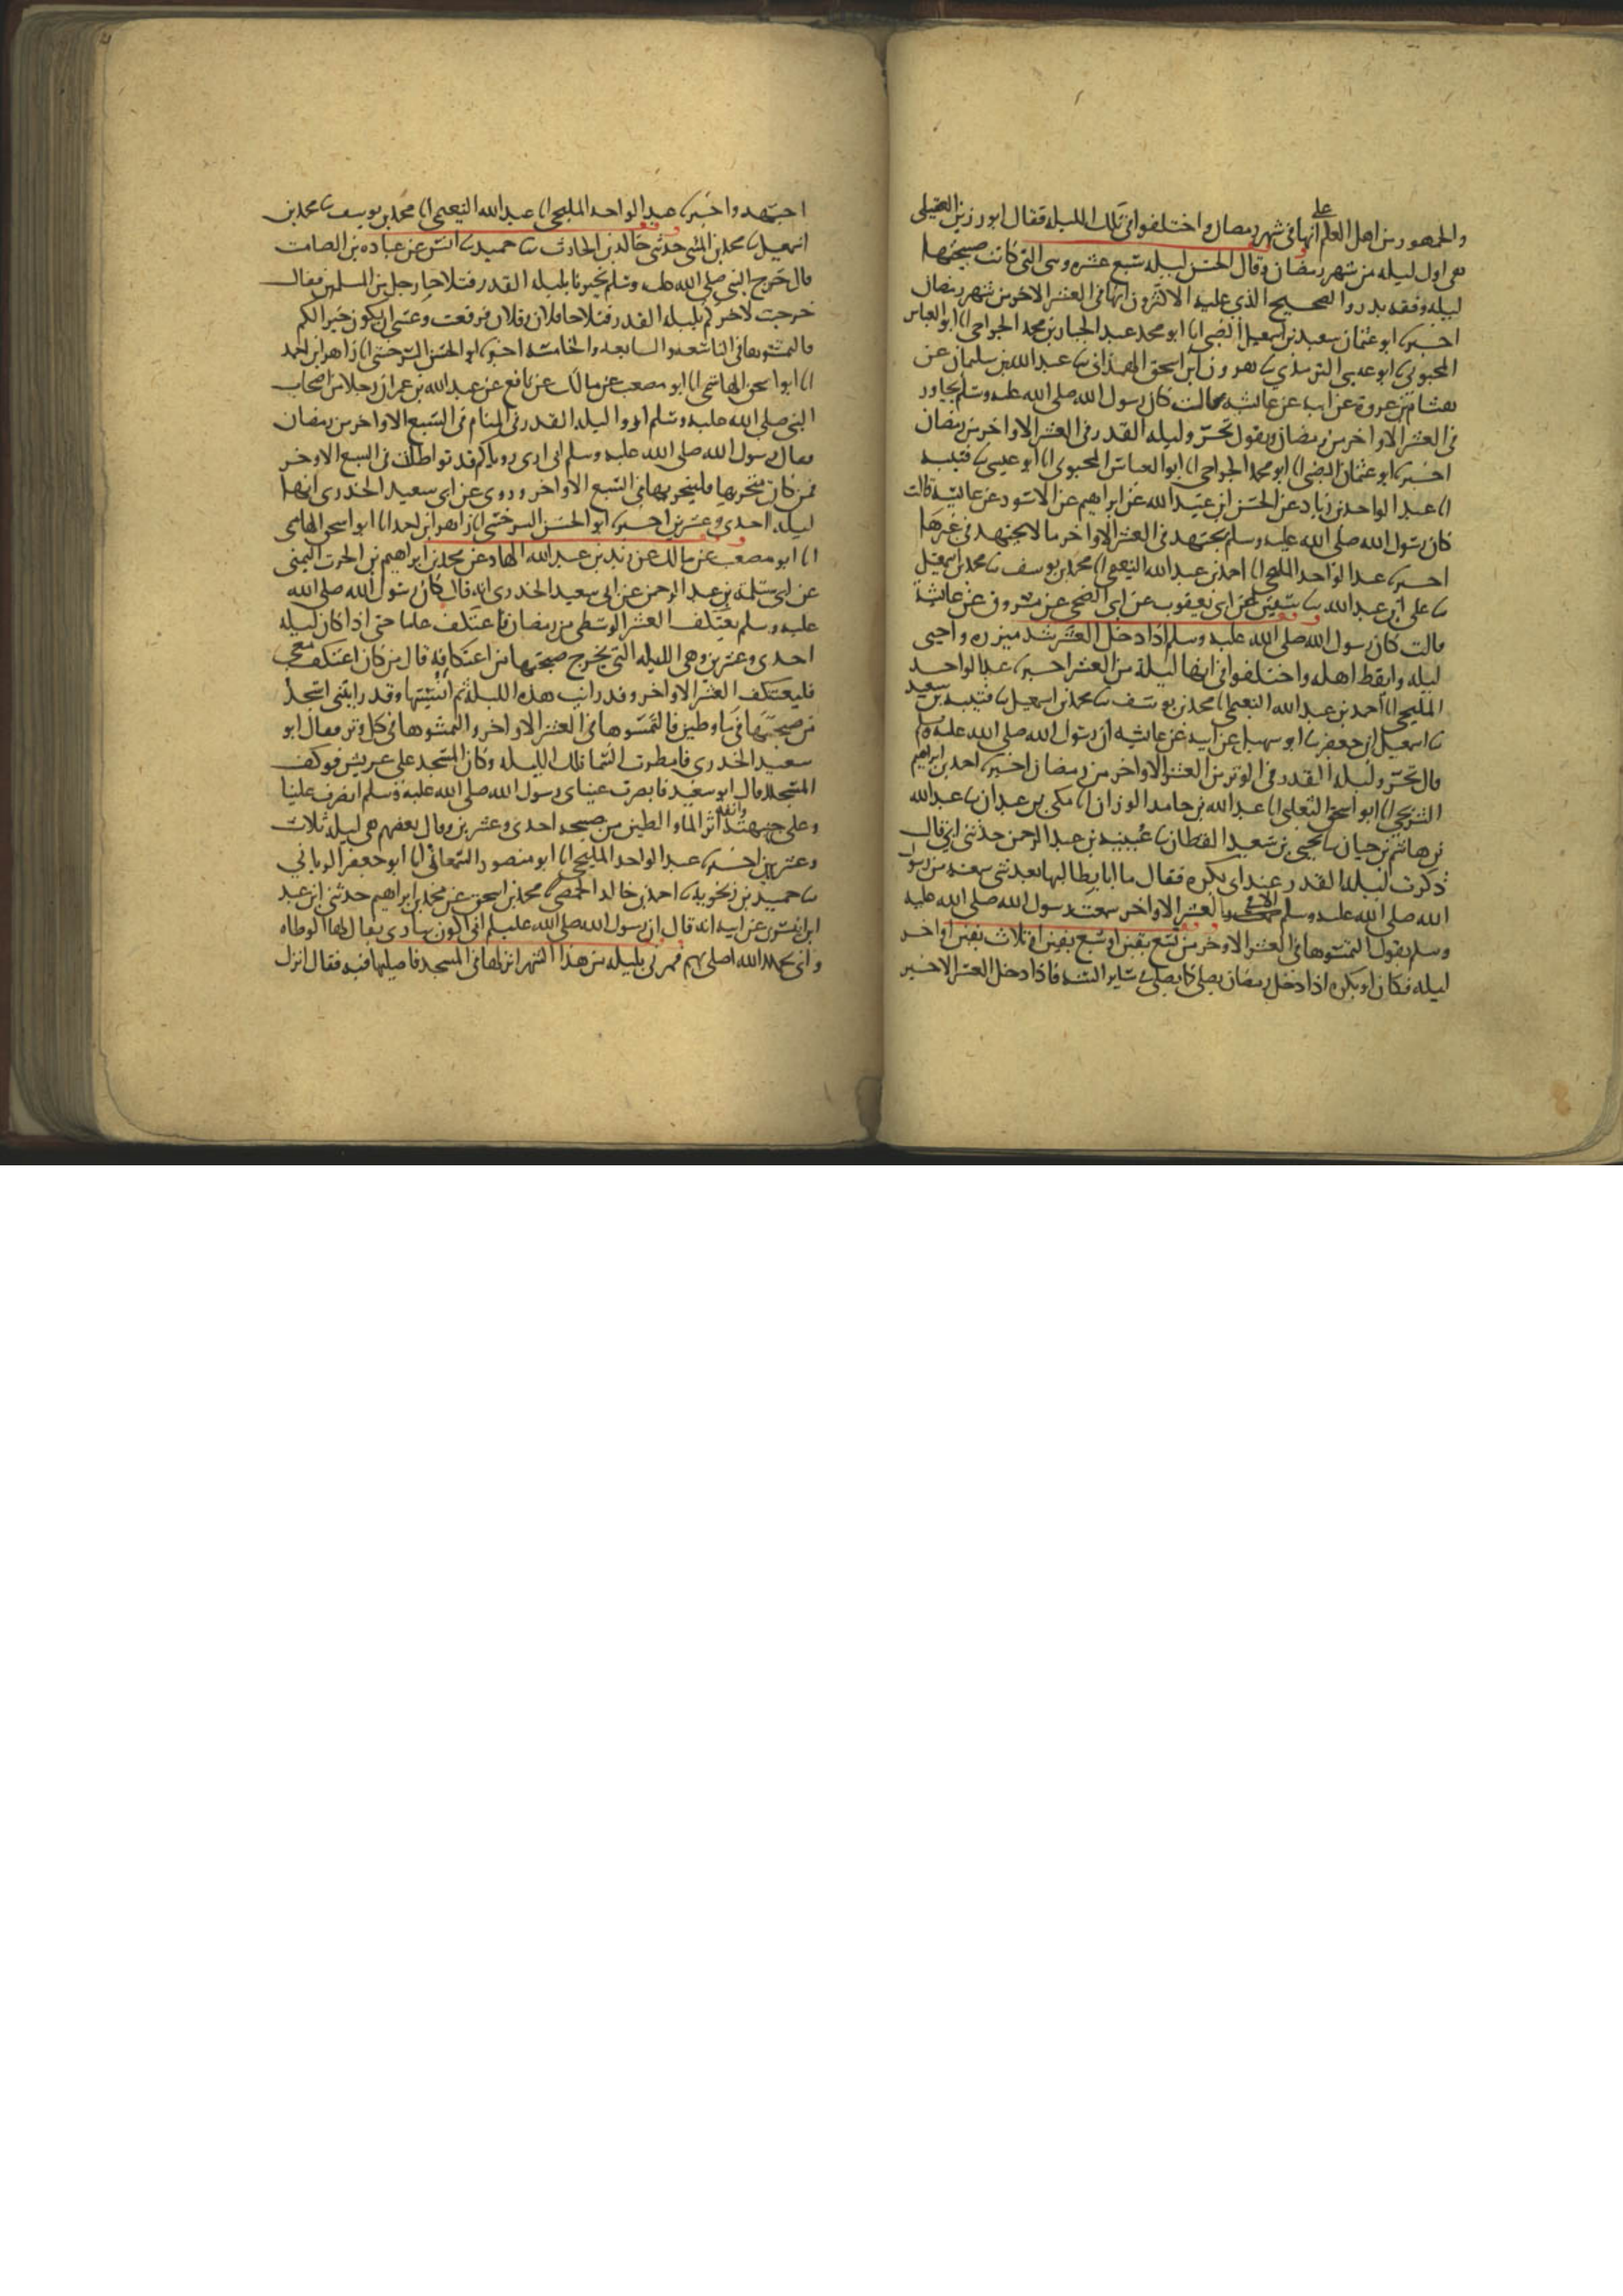 والجمهور من اهل العلم على انها في شهر رمضان واختلفوا في تلك الليلة فقال ابو رزين العقيلي
هي اول ليله من شهر رمضان وقال الحسن ليله سبع عشره وهي التي كانت صبيحتها
ليله وقعه بدر والصحيح الذي عليه الاكثرون انها في العشر الاخر من شهر رمضان
اخبرنا ابو عثمان سعيد بن اسمعيل الضبي انا ابو محمد عبد الجبار بن محمد الجراحي انا ابو العباس
المحبوبي نا ابو عيسى الترمذي نا هرون ابن اسحق الهمذاني نا عبد الله بن سليمان عن
هشام بن عروة عن ابيه عن عائشه قالت كان رسول الله صلى الله عليه وسلم يجاور
في العشر الاواخر من رمضان ويقول تحروا ليله القدر في العشر الاواخر من رمضان
اخبرنا ابو عثمان الضبي انا ابو محمد الجراحي انا ابو العباس المحبوبي انا ابو عيسى نا قتيبه
انا عبد الواحد بن زياد عن الحسن ابن عبيد الله عن ابراهيم عن الاسود عن عائشه قالت
كان رسول الله صلى الله عليه وسلم يجتهد في العشر الاواخر ما لا يجتهد في غيرها
اخبرنا عبد الواحد المليحي انا احمد بن عبد الله النعيمي انا محمد بن يوسف نا محمد بن اسمعيل
نا علي ابن عبد الله نا سفين عن ابي يعفوب عن ابي الضحى عن مسروق عن عائشة
قالت كان رسول الله صلى الله عليه وسلم اذا دخل العشر شد ميزره واحيى
ليله وايقظ اهله واختلفوا في انها ليلة من العشر اخبرنا عبد الواحد
المليحي انا احمد بن عبد الله النعيمي انا محمد بن يوسف نا محمد بن اسمعيل نا قتيبه بن سعيد
نا اسمعيل بن جعفر نا ابو سهيل عن ابيه عن عائشه ان رسول الله صلى الله عليه وسلم
قال تحروا ليله القدر في الوتر من العشر الاواخر من رمضان اخبرنا احمد بن ابراهيم
الشريحي انا ابو اسحق الثعلبي انا عبد الله بن حامد الوزان انا مكي بن عبدان نا عبد الله
بن هاشم بن حيان نا يحيى بن سعيد القطان نا عيينه بن عبد الرحمن حدثني ابي قال
ذكرت ليله القدر عند ابي بكره فقال ما انا بطالبها بعد شي سمعته من رسول
الله صلى الله عليه وسلم الا في العشر الاواخر سمعت رسول الله صلى الله عليه
وسلم يقول التمسوها في العشر الاوخر من تسع بقين او سبع بقين او ثلاث بقين او اخر
ليله فكان ابو بكره اذا دخل رمضان يصلي كما يصلي في ساير السنه فاذا دخل العشر الاخير
اجتهد واخبرنا عبد الواحد المليحي انا عبد الله النعيمي انا محمد بن يوسف نا محمد بن
اسمعيل نا محمد بن المثنى حدثني خالد بن الحارث نا حميد نا انس عن عباده بن الصامت
قال خرج النبي صلى الله عليه وسلم يخبرنا بليله القدر فتلاحا رجل من المسلمين فقال
خرجت لاخبركم بليله القدر فتلاحا فلان وفلان فرفعت وعسى ان يكون خيرا لكم
فالتمسوها في التاسعه والسابعه والخامسه اخبرنا ابو الحسن السرخسي انا زاهر ابن احمد
انا ابو اسحق الهاشمي انا ابو مصعب عن مالك عن نافع عن عبد الله بن عمر ان رجلا من اصحاب
النبي صلى الله عليه وسلم اروا ليله القدر في المنام في السبع الاواخر من رمضان
فقال رسول الله صلى الله عليه وسلم اني ارى روياكم قد تواطات في السبع الاوخر
فمن كان متحريها فليتحريها في السبع الاواخر وروي عن ابي سعيد الخدري انها
ليله احدى وعشرين اخبرنا ابو الحسن السرخسي انا زاهر ابن احمد انا ابو اسحق الهاشمي
انا ابو مصعب عن مالك عن يزيد بن عبد الله الهاد عن محمد بن ابراهيم بن الحرث التيمي
عن ابي سلمة بن عبد الرحمن عن ابي سعيد الخدري انه قال كان رسول الله صلى الله
عليه وسلم يعتكف العشر الوسطى من رمضان فاعتكف عاما حتى اذا كان ليله
احدى وعشرين وهي الليله التي يخرج صبحتها من اعتكافه قال من كان اعتكف معي
فليعتكف العشر الاواخر وقد رايت هذه الليلة ثم انسيتها وقد رايتني اسجد
من صبحتها في ما وطين فالتمسوها في العشر الاواخر والتمسوها في كل وتر فقال ابو
سعيد الخدري فامطرت السما تلك الليله وكان المسجد على عريش فوكف
المسجد قال ابو سعيد فابصرت عيناي رسول الله صلى الله عليه وسلم انصرف علينا
وعلى جبهته وانفه اثر الما والطين من صبيحه احدى وعشرين وقال بعضهم هي ليله ثلاث
وعشرين اخبرنا عبد الواحد المليحي انا ابو منصور السمعاني انا ابو جعفر الرياني
نا حميد بن زنجويه نا احمد بن خالد الحمصي نا محمد بن اسحق عن محمد بن ابراهيم حدثني ابن عبد
ابن انيس عن ابيه انه قال ان رسول الله صلى الله عليه وسلم اني اكون ببادية يقال لها الوطاه
واني بحمد الله اصلي بهم فمرني بليله من هذا الشهر انزلها في المسجد فاصليها فيه فقال انزل